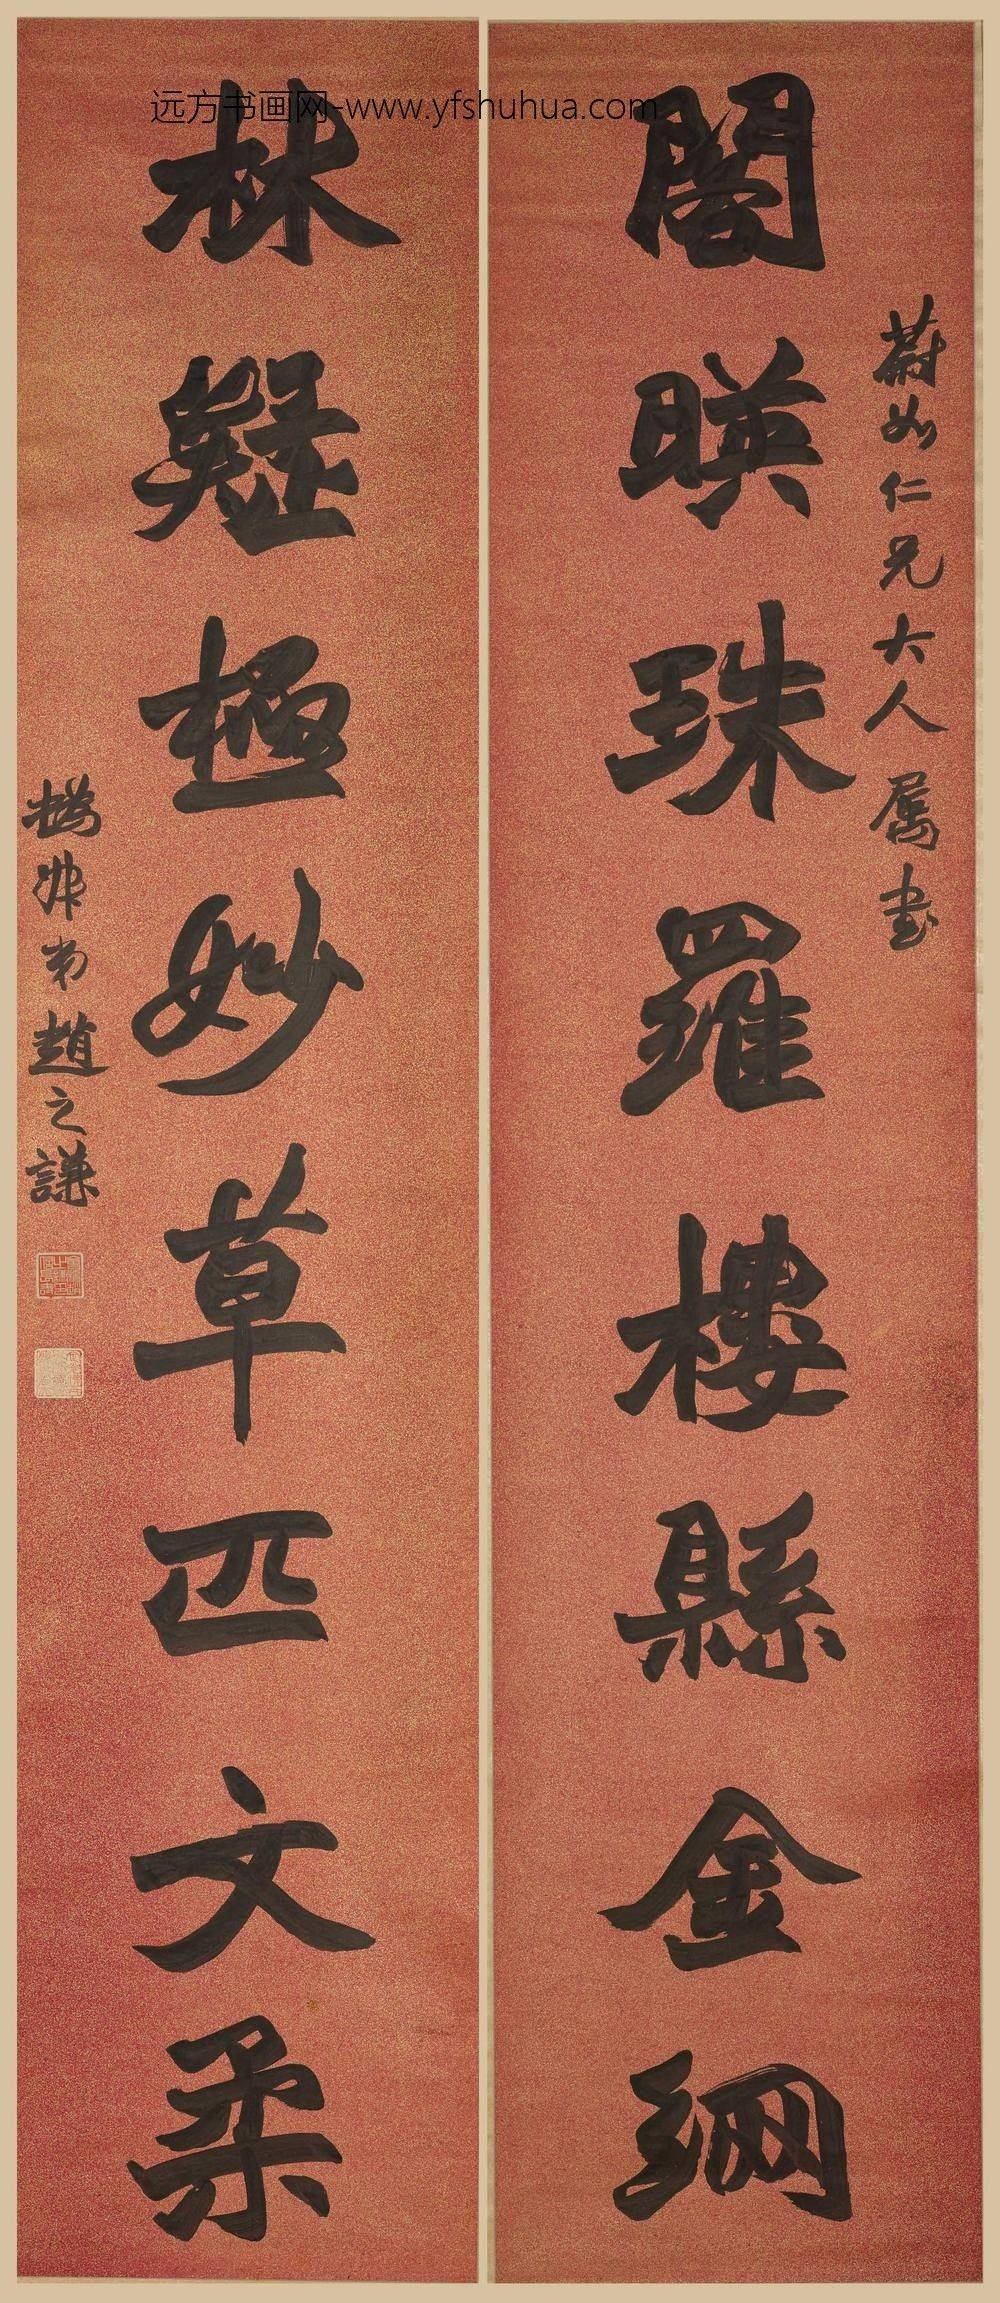 远方书画网-www.yfshuhua.com
蔚如仁兄大人属书
閣暎珠羅樓縣金網
林疑極妙草匹文柔
撝叔弟趙之謙